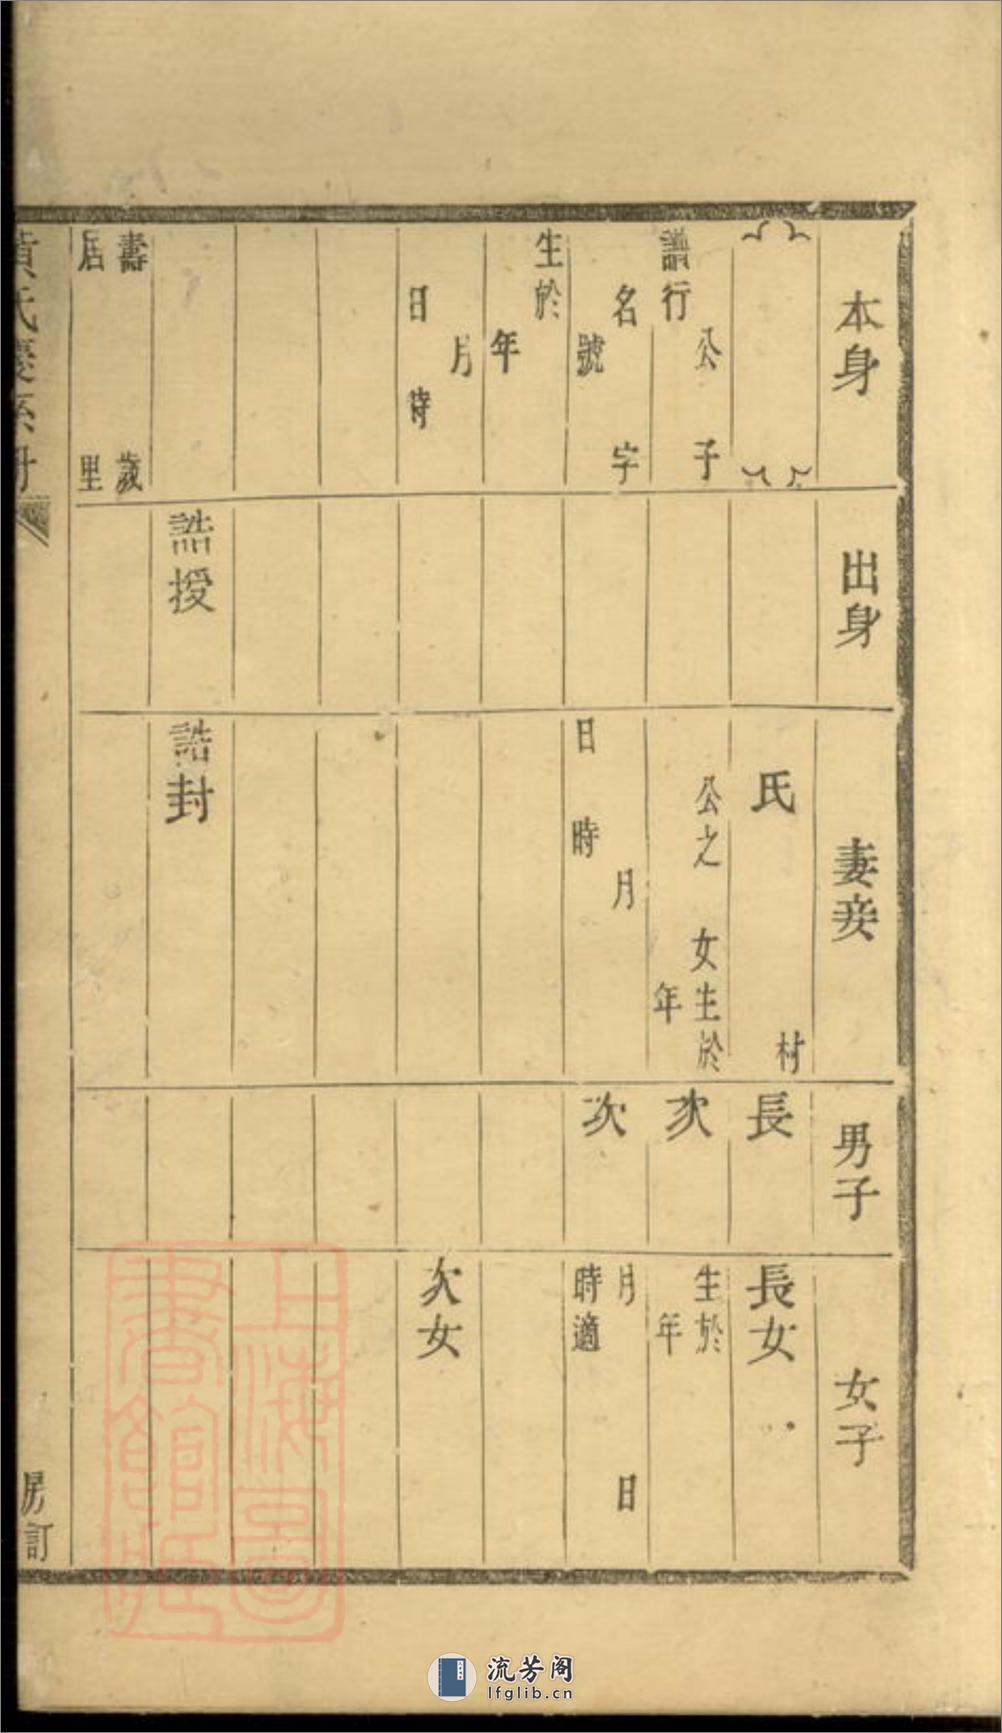 本身
出身
妻妾
男子
女子
公子
譜行
名字
號
生於
年
月
日時
壽歲
居里
誥授
村
氏
公之女生於
年
月
日時
誥封
長
次
次
長女
生於
年
月日
時適
次女
黃氏慶系冊
房訂
上海圖書館藏
流芳阁
lfglib.cn